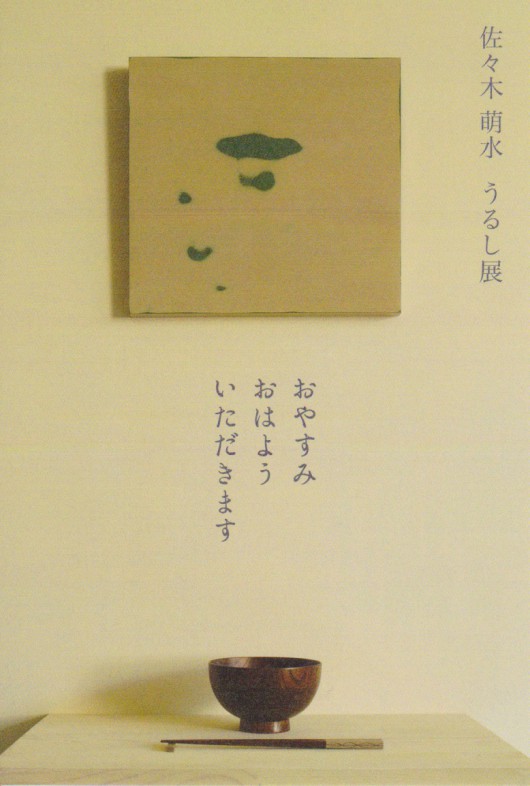 佐々木 萌水 うるし展
おやすみ
おはよう
いただきます